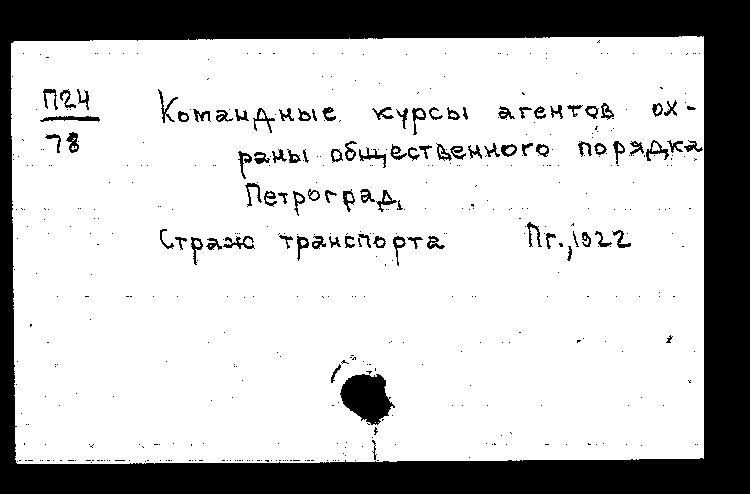 П24
78
Командные курсы агентов ох-
раны общественного порядка
Петроград,
Страж транспорта Пг., 1922